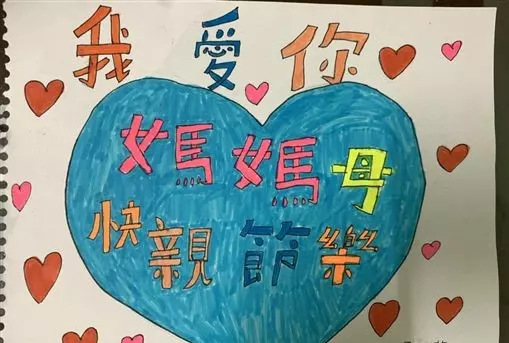 我愛你
媽媽母
快親節樂